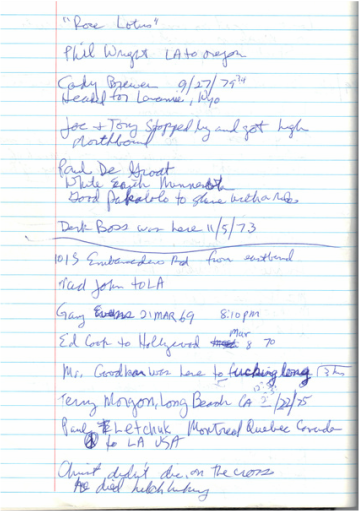 "Rose Lotus"
Phil Wright LA to Oregon
Cody Brewer 9/27/75
Headed for Laramie, Wyo
Joe + Tony Stopped by and got high
Northbound
Paul De Groat
White Earth Minnesota
Good Pakalolo to share with a rides
Derk Boss was here 11/5/73
1015 Embarcadero Rd from eastbend
Tad John to LA
Gary Evans 21 MAR 69 8:10 pm
Ed Cook to Hollywood Mar 8 70
Mr. Goodbar was here to fucking long 3 hrs
Terry Morgon, Long Beach CA 2/22/75
Paul Letchuk Montreal Quebec Canada
to LA USA
Christ didn't die on the cross
He died hitchhiking